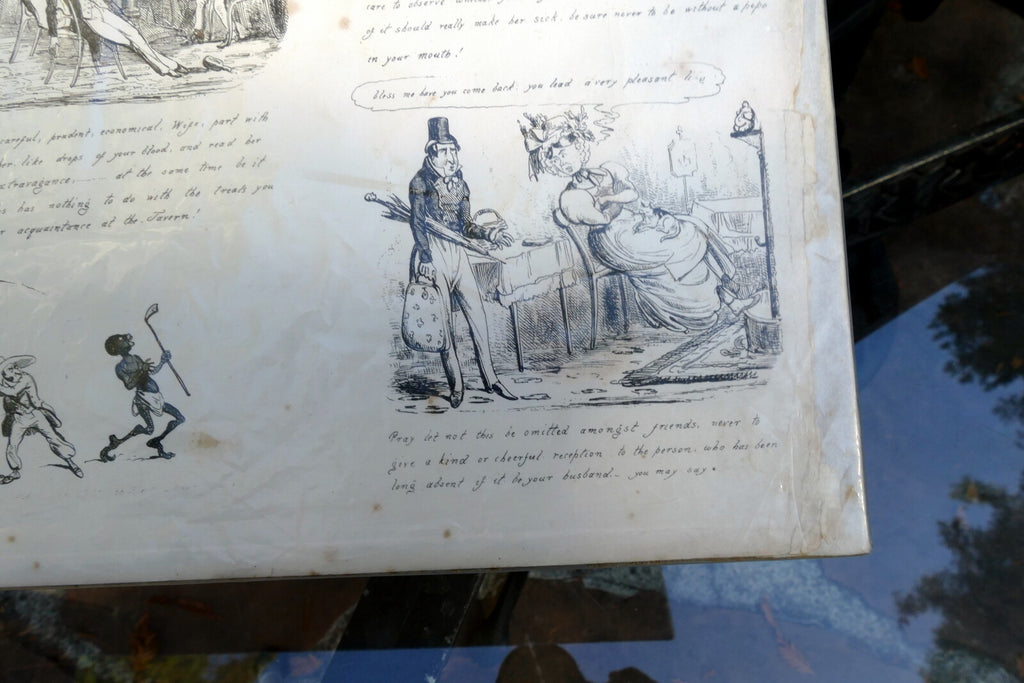 care to observe
of it should really make her sick. be sure never to be without a pipe
in your mouth!
Bless me have you come back. you lead a very pleasant life
careful, prudent, economical, Wife, part with
her like drops of your blood, and read her
extravagance, — at the same time be it
has nothing to do with the treats you
acquaintance at the Tavern!
Pray let not this be omitted amongst friends, never to
give a kind or cheerful reception to the person, who has been
long absent if it be your husband – you may say.